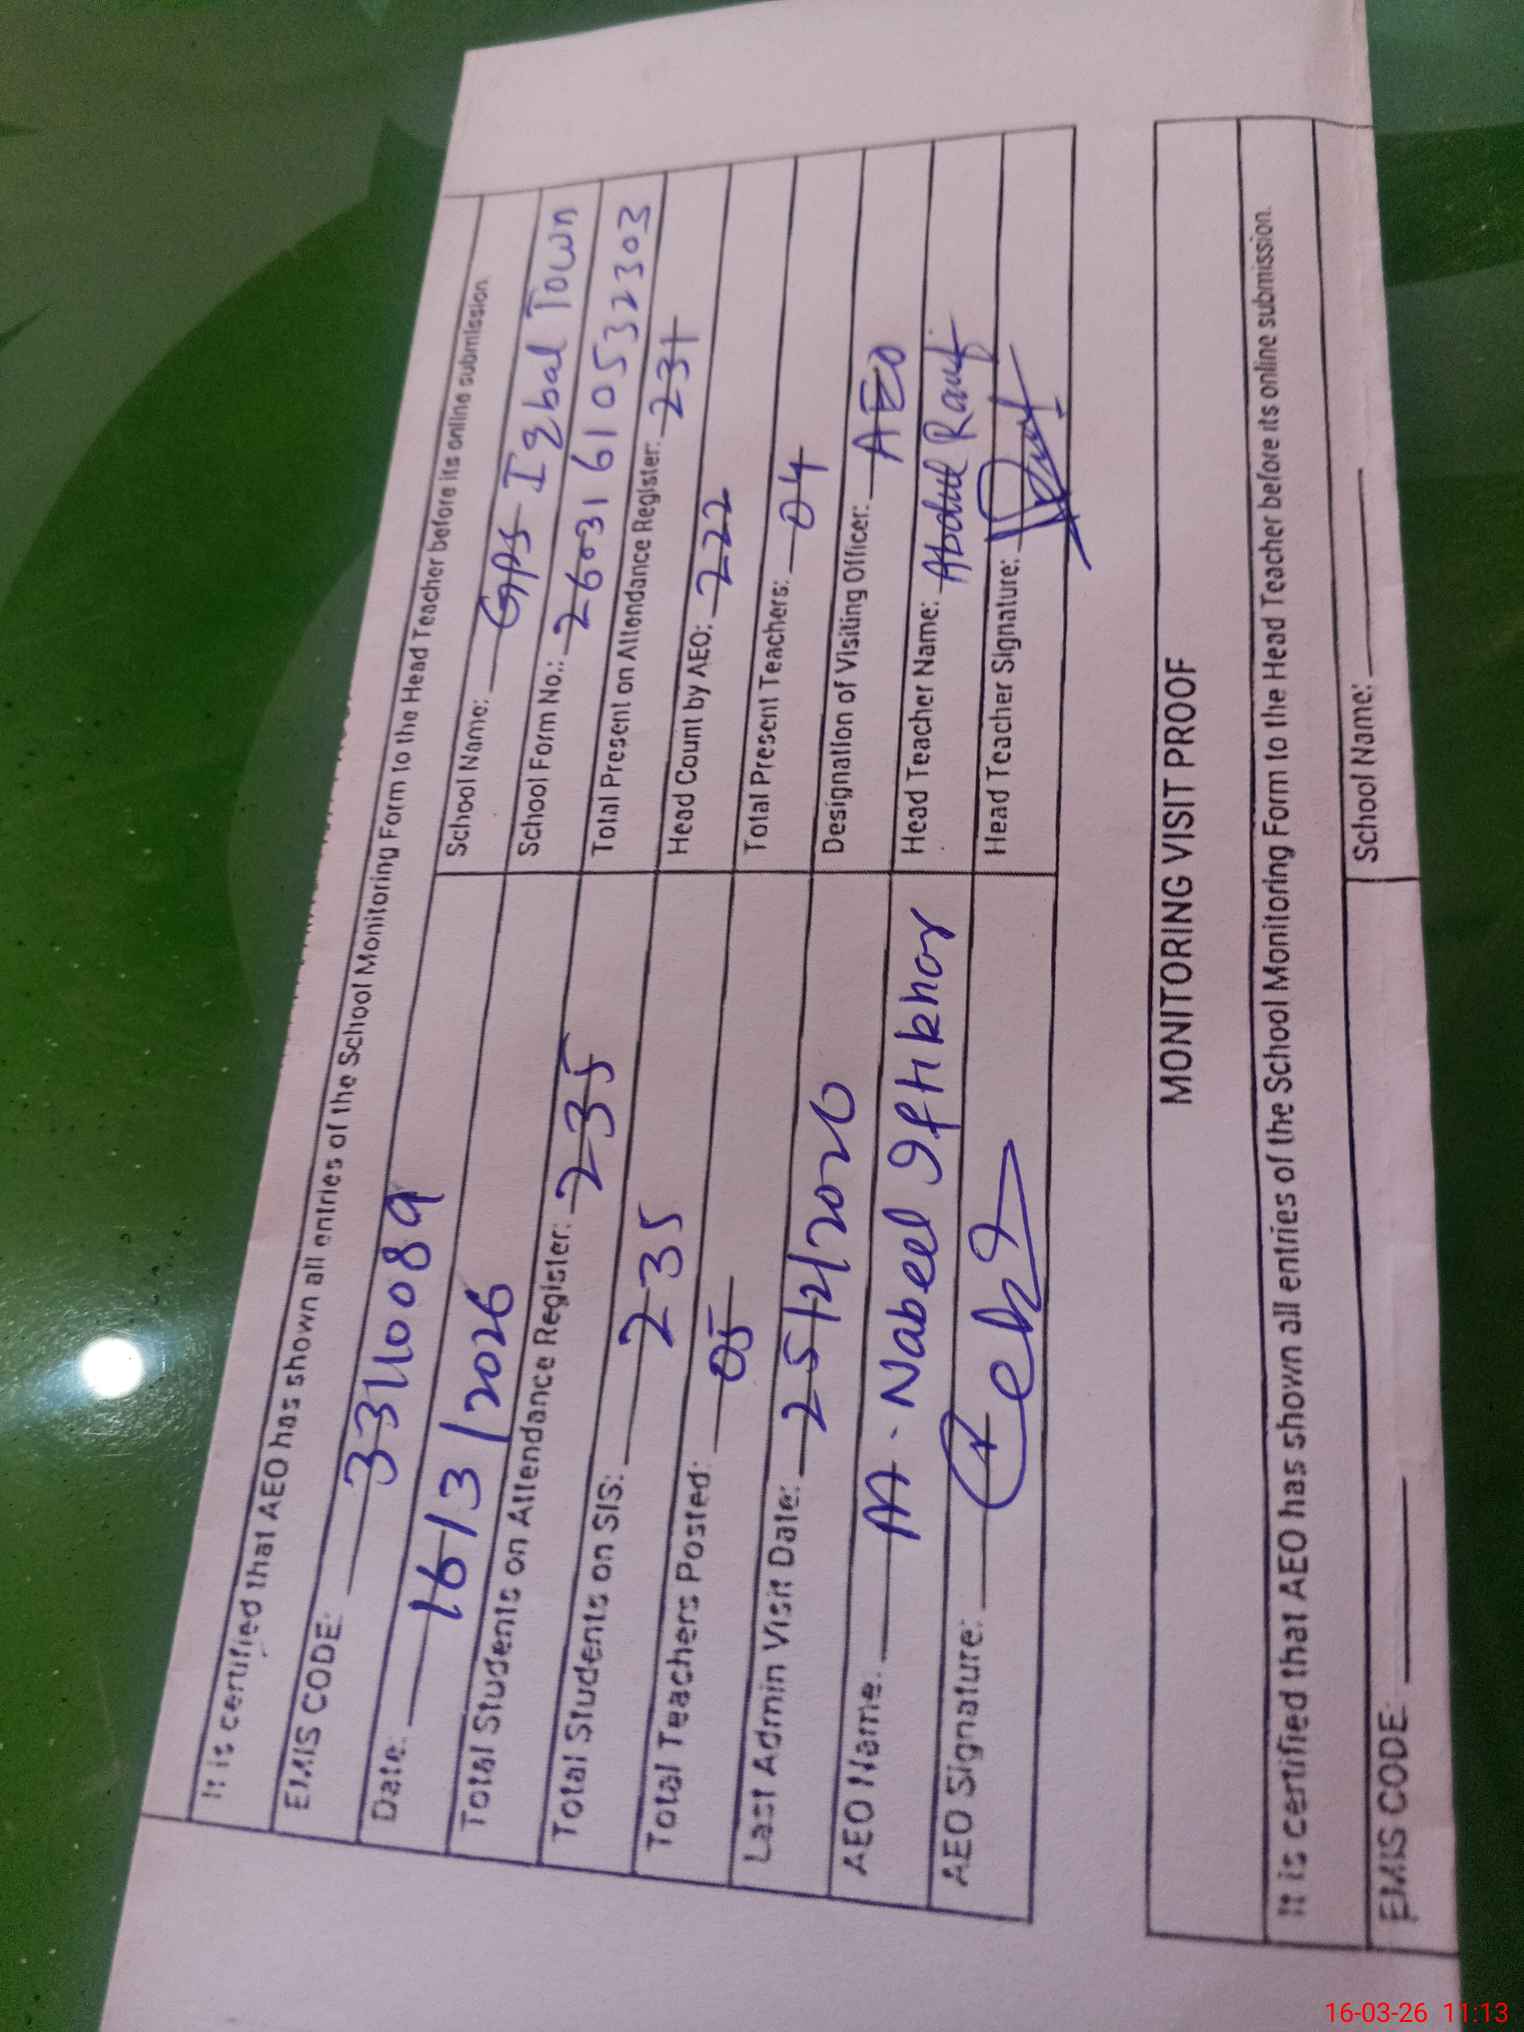 It is certified that AEO has shown all entries of the School Monitoring Form to the Head Teacher before its online submission.
EMIS CODE: 33110089 School Name: GPS Iqbal Town
Date: 16/3/2026 School Form No.: 26031610532303
Total Students on Attendance Register: 235 Total Present on Attendance Register: 231
Total Students on SIS: 235 Head Count by AEO: 222
Total Teachers Posted: 05 Total Present Teachers: 04
Last Admin Visit Date: 25/2/2026 Designation of Visiting Officer: AEO
AEO Name: M. Nabeel Iftikhar Head Teacher Name: Abdul Rauf
AEO Signature: Head Teacher Signature: Rauf
MONITORING VISIT PROOF
It is certified that AEO has shown all entries of the School Monitoring Form to the Head Teacher before its online submission.
EMIS CODE: School Name:
16-03-26 11:13